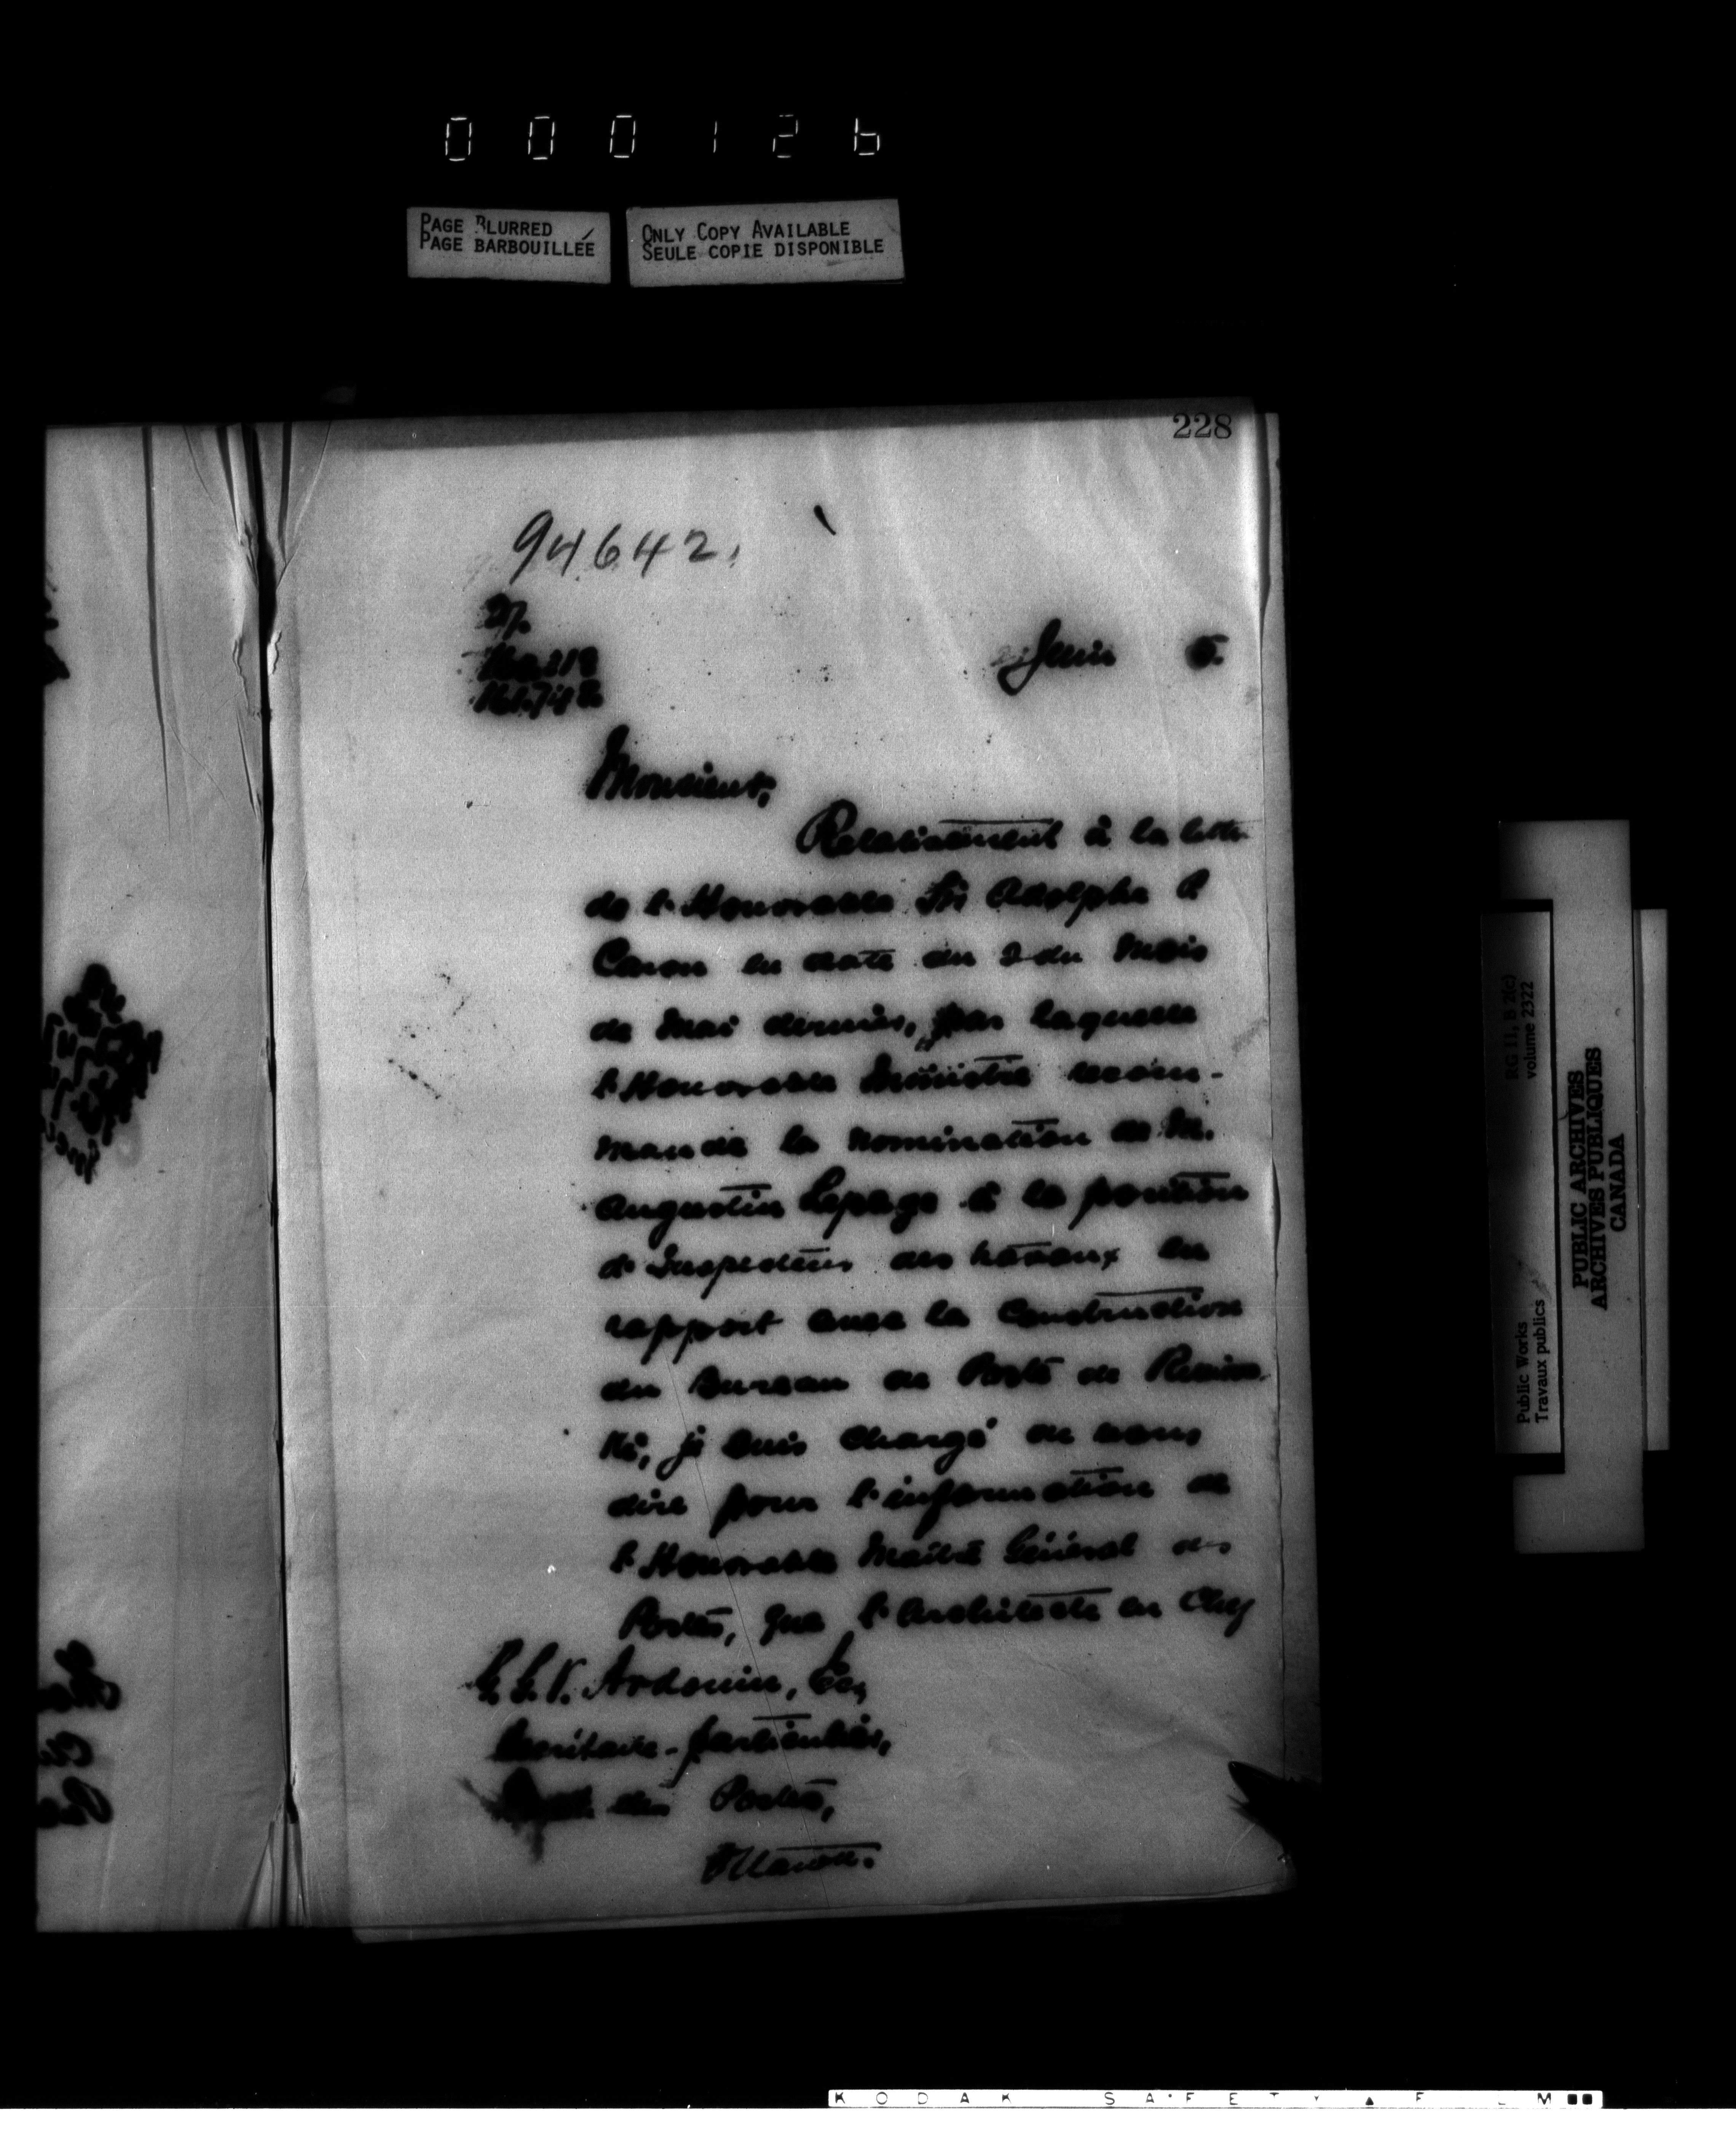 000126
PAGE BLURRED
PAGE BARBOUILLÉE
ONLY COPY AVAILABLE
SEULE COPIE DISPONIBLE
228
94642.
Juin 5.
Monsieur,
Relativement à la lettre
de l'Honorable Sir Adolphe P.
Caron en date du 2 du mois
de Mai dernier, par laquelle
l'Honorable Ministre recom-
mande la nomination de M.
Augustin Lepage à la position
d'Inspecteur des travaux en
rapport avec la Construction
du Bureau de Poste de Rimous-
ki, je suis chargé de vous
dire pour l'information de
l'Honorable Maître Général des
Postes, que l'architecte en Chef
Ardouin, Ec,
Secrétaire-particulier,
des Postes,
Ottawa.
RG 11, B 2(c)
volume 2322
Public Works
Travaux publics
PUBLIC ARCHIVES
ARCHIVES PUBLIQUES
CANADA
KODAK SAFETY FILM